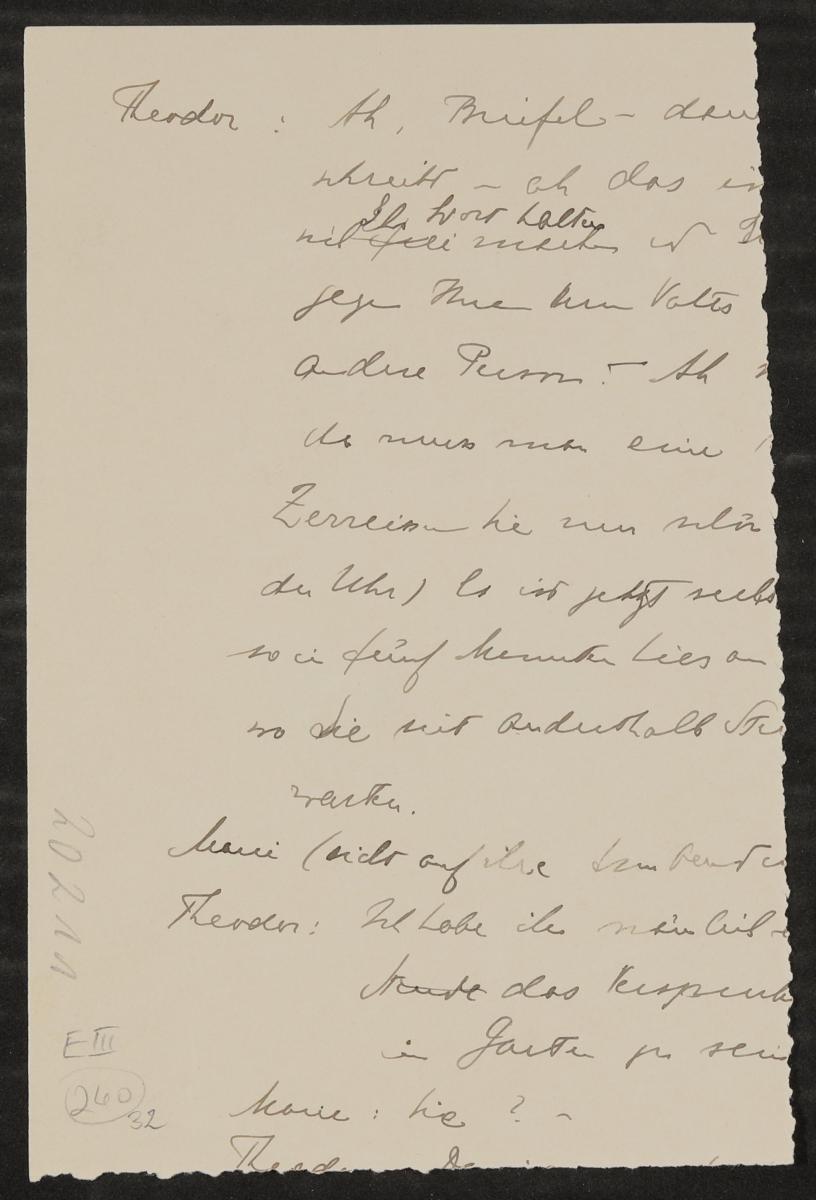 Theodor : Ah, Brieferl – dan
schreibt – ah das is
Ehrwort halten
nit frei machen
gegen Ihren Herrn Vater
andere Person. – Ah
da muss man eine
Zerreissen Sie nur schön
der Uhr) Es ist jetzt sechs
so in fünf Minuten
wo Sie seit anderthalb Stu
warten.
Marie (sieht auf ihre
Theodor: Ich habe ihr nämlich
Stunde das Versprech
im Garten zu sein
Marie : Sie ? –
Theodor
20211
E III
240
32